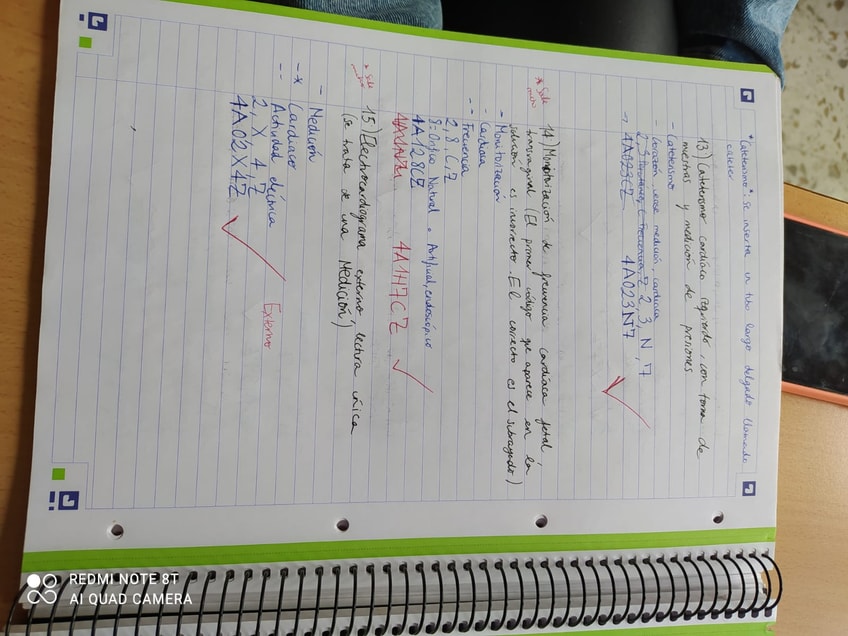 * Cateterismo*: Se inserta un tubo largo delgado llamado
catéter
13) Cateterismo cardíaco izquierdo, con toma de
muestras y medición de presiones
- Cateterismo
medición, cardíaca
4A023CZ 4A023N7
2, 3, N, 7
* Sale
14) Monitorización de frecuencia cardíaca fetal,
transvaginal (El primer código que aparece en la
solución es incorrecto. El correcto es el subrayado)
- Monitorización
- Cardíaca
-- Frecuencia
2, 8, C, Z
8 = Orificio Natural o Artificial, endoscópico
4A128CZ
4A1H7CZ
* Sale
15) Electrocardiograma externo, lectura única
(se trata de una Medición)
- Medición
-* Cardíaco
-- Actividad eléctrica
2, X, 4, Z
Externo
4A02X4Z
REDMI NOTE 8T
AI QUAD CAMERA